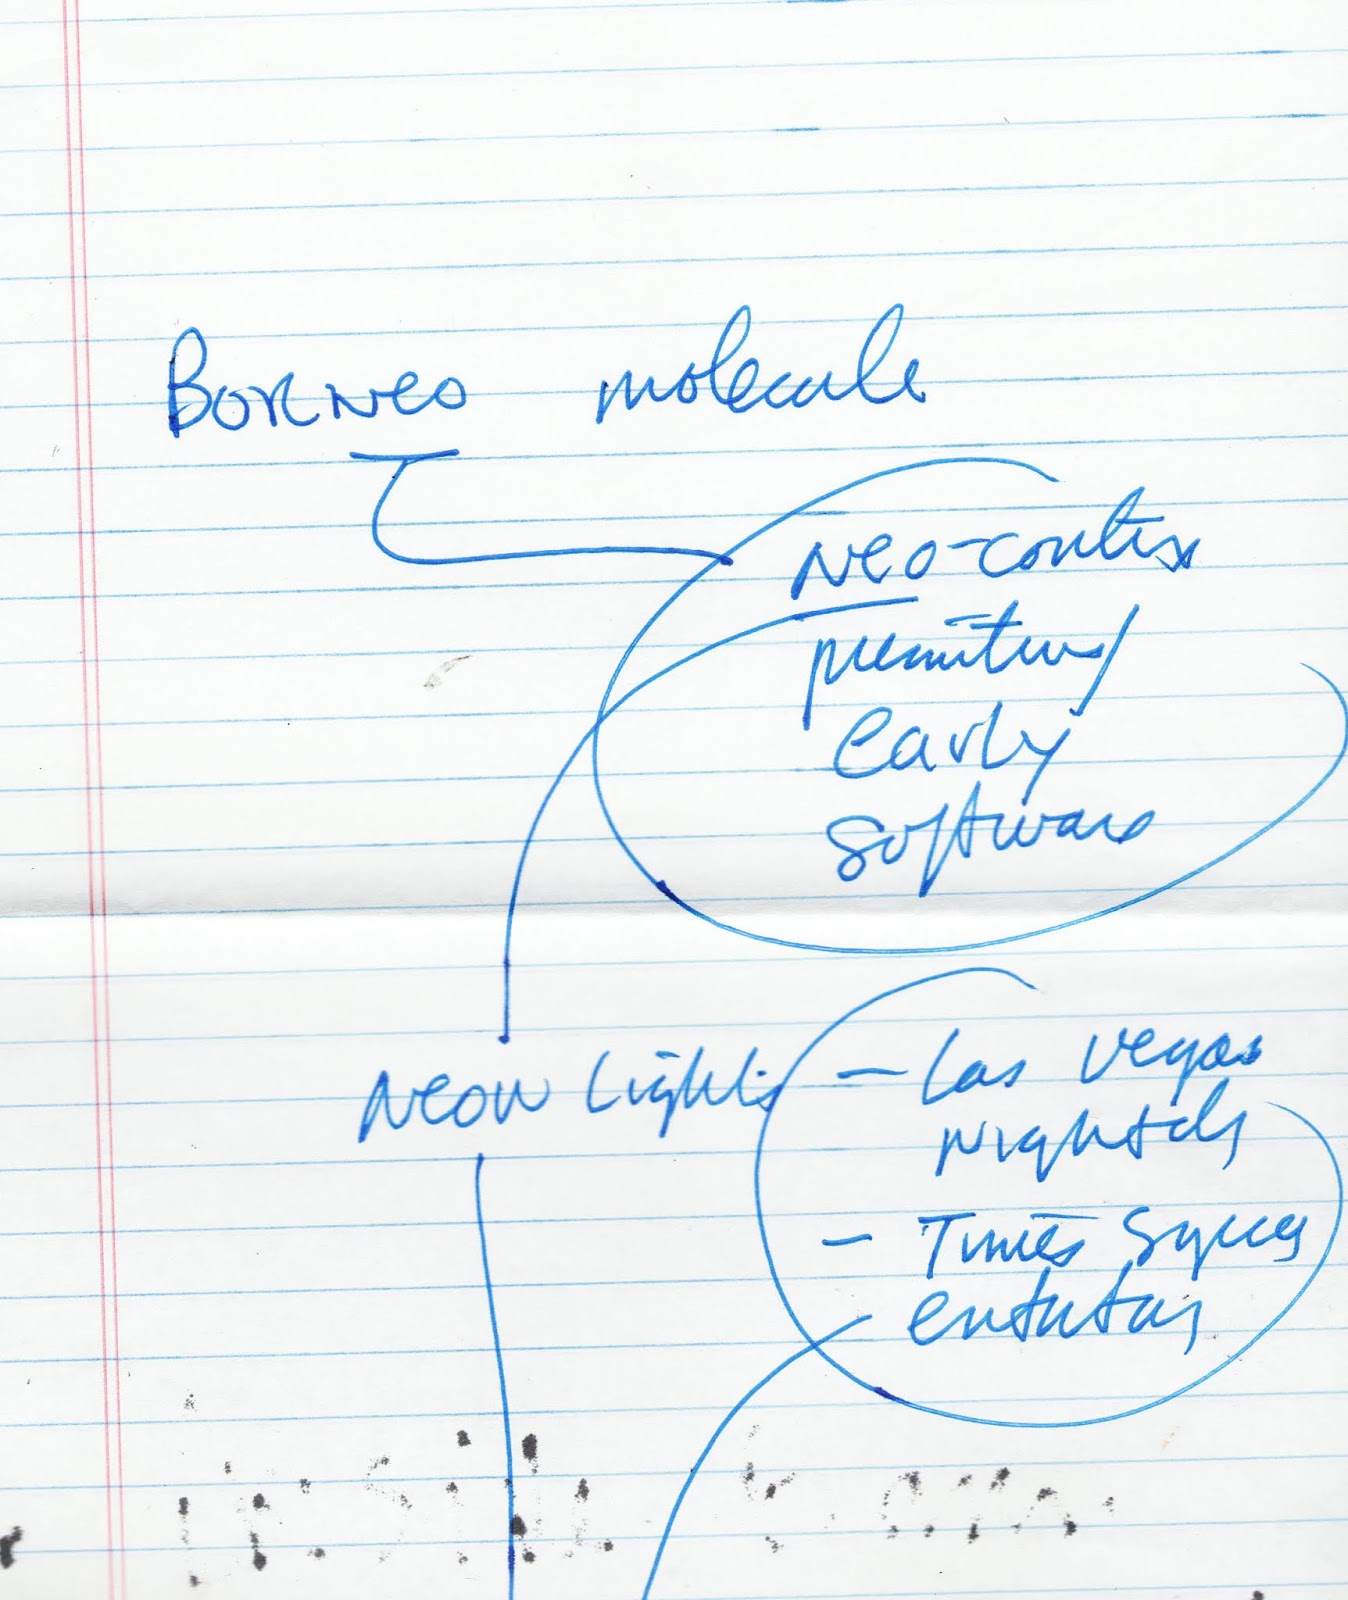 Borneo molecule
Neo-cortex
primitive/
early
software
Neon Lights - Las Vegas
- Times Square